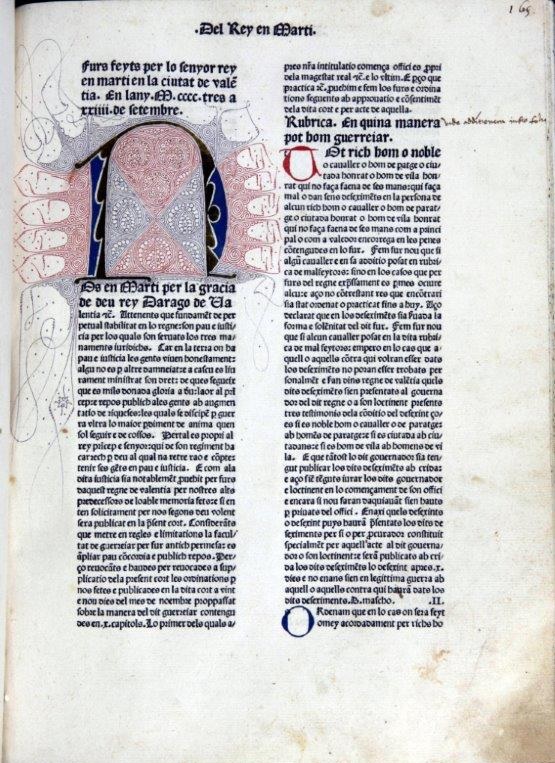 .Del Rey en Marti.
165
Furs feyts per lo senyor rey
en marti en la ciutat de valē
tia. En lany. M. cccc. tres a
xxiiii. de setembre.
Os en Marti per la gracia
de deu rey Darago de Ua
lentia ⁊c. Attenents que fundamēt de per
petual stabilitat en lo regne: son pau e iusti
cia per los quals son seruats los tres ma
naments iuridichs. Car en la terra on ha
pau e iusticia les gents viuen honestament:
algu no es p altre damneiat: e cascu es liu
rament ministrat son dret: de ques segueix
que es mils donada gloria a
re: e repos publich als gents ab augmen
tatio de riqueses: les quals se discipē p guera
vltra lo maior pdiment de anima quen
sol seguir e de cossos. Pertal es propri al
rey princep e senyor: qui de son regiment ha
carrech p deu al qual na retre rao e cōpte:
tenir ses gēts en pau e iusticia. E com ala
dita iusticia sia notablemēt prouehit per furs
daquest regne de valentia per nostres alts
predecessors de loable memoria fets: e si en
ten solicitament per nos segons deu volent
sera publicat en la psent cort. Considerāts
que metre en regles e limitations la facul
tat de guerreiar per fur antich permesa: es
āpliar pau cōcordia e publich repos. Per
ço reuocāts e hauets per reuocades a sup
plicatio dela present cort les ordinations p
nos fetes e publicades en la dita cort a vint
e nou dies del mes de noembre proppassat
sobre la manera del dit guerreiar contengu
des en. x. capitols. Lo primer dels quals a
pres nr̄a intitulatio comença offici es ppri
dela magestat real ⁊c. e lo vltim. E pço que
practica ⁊c. puehim e fem los furs e ordina
tions seguents ab approuatio e cōsentimēt
dela dita cort e per acte de aquella.
Rubrica. En quina manera
pot hom guerreiar.
Tot rich hom o noble
o caualler o hom de paratge o ciu
tada honrat o hom de vila hon
rat qui no faça faena de ses mans: qui faça
mal o dan sens deseximēts en la persona de
algun rich hom o caualler o hom de parat
ge o ciutada honrat o hom de vila honrat
qui no faça faena de ses mans com a princi
pal o com a valedor encorrega en les penes
cōtengudes en lo fur. Fem fur nou que si
algū caualler e en sa additio posat en rubri
ca de malfeytors: sino en los casos que per
furs del regne exp̄ssament es pmes ociure
alcu: e aço no cōtrestant res que encōtrari
sia stat ordenat o practicat fins a huy. Aço
declarat que en los deseximēts sia fuada la
forma e solēnitat del dit fur. Fem fur nou
que si alcun caualler posat en la dita rubri
ca de malfeytors: empero en lo cas que a
quell o aquells cōtra qui volran esser dats
los deseximēts no poran esser trobats per
sonalmēt e fan dins regne de valētia quels
dits deseximēts sien presentats al gouerna
dor del dit regne o a son loctinent presents
tres testimonis dela cōditio del desexint ço
es si es noble hom o caualler o de paratge:
ab homēs de paratge: si es ciutada ab ciu
tadans: e si es hom de vila ab homens de vi
la. E que tātost lo dit gouernador sia ten
gut publicar los dits deseximēts ab crida:
e aço siē tēguts iurar los dits gouernador
e loctinent en lo començament de son offici
e encara si nou faran daquiauāt sien hauts
p priuats del offici. Enaxi quels deseximēts
o desexint puys haurā psentats los dits de
seximents per si o per pcurador constituit
specialmēt per aquell acte al dit gouerna
dor o son loctinent: e serā publicats ab cri
da los dits deseximēts lo desexint apres. x.
dies e no enans sien en legittima guerra ab
aquell o aquells contra qui haurā dats los
dits deseximents. D. mascho. .II.
Ordenam que en lo cas on sera feyt
omey acordadament per richs ho
vide additionem